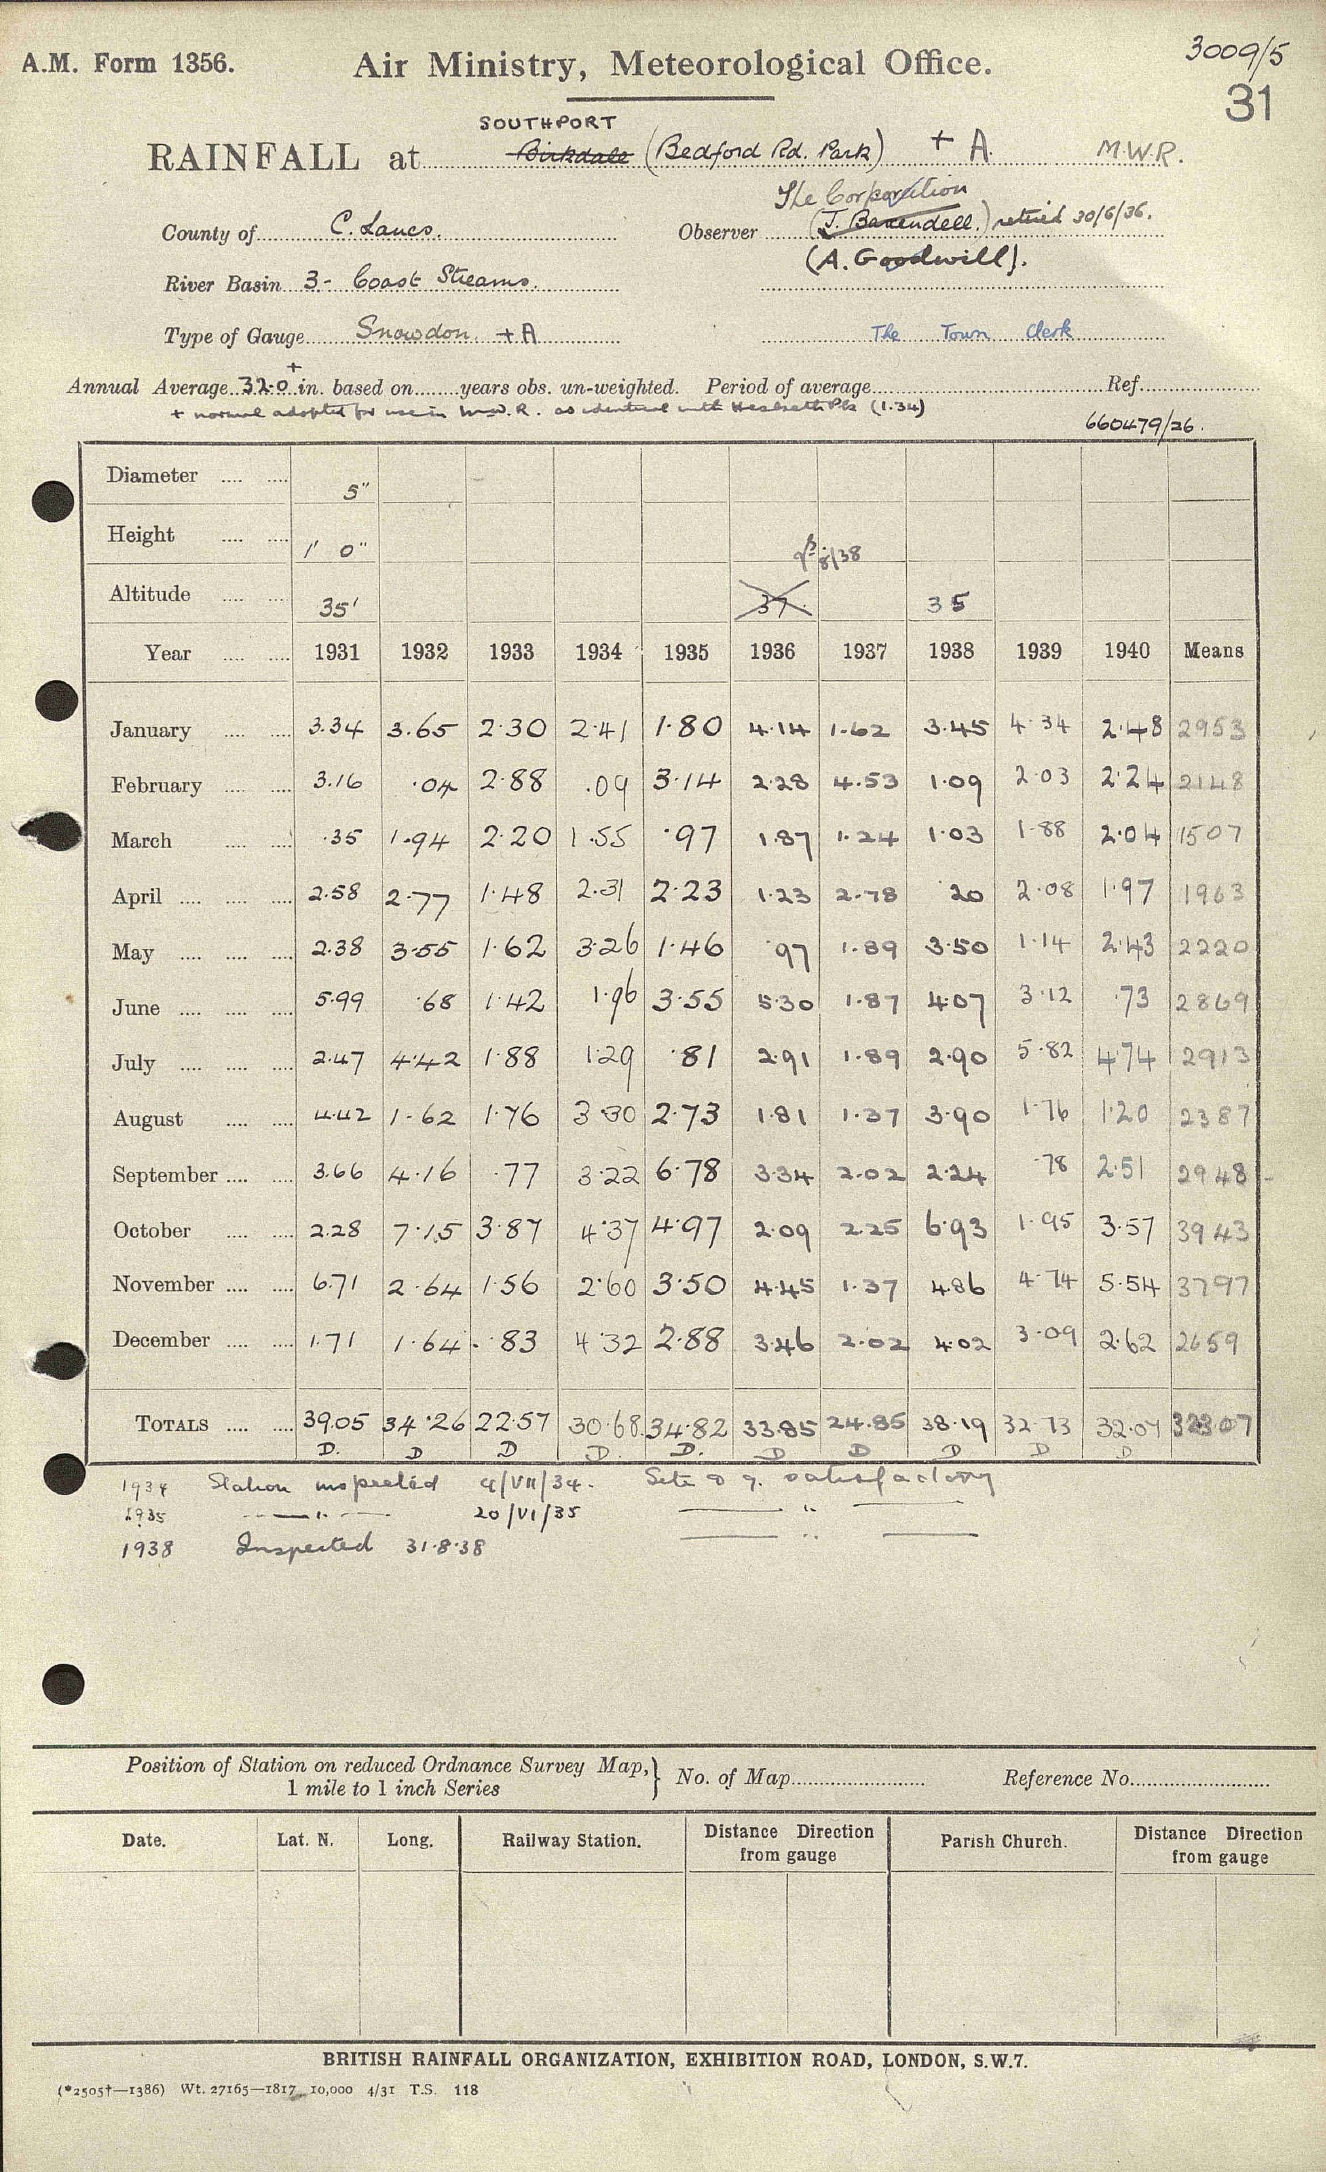 3009/5
A.M. Form 1356. Air Ministry, Meteorological Office.
31
SOUTHPORT
RAINFALL at Birkdale (Bedford Rd. Park) + A. M.W.R.
The Corporation
County of C. Lancs. Observer (J. Baxendell.) retired 30/6/36.
(A. Goodwill).
River Basin 3- Coast Streams.
Type of Gauge Snowdon. + A The Town Clerk
Annual Average 32.0+ in. based on years obs. un-weighted. Period of average Ref.
+ normal adopted for use in M.W.R. as identical with Hesketh Pk (1.34)
660479/26.
Diameter 5"
Height 1' 0"
8/38
Altitude 35' 37. 35
Year 1931 1932 1933 1934 1935 1936 1937 1938 1939 1940 Means
January 3.34 3.65 2.30 2.41 1.80 4.14 1.62 3.45 4.34 2.48 2953
February 3.16 .04 2.88 .09 3.14 2.28 4.53 1.09 2.03 2.24 2148
March .35 1.94 2.20 1.55 .97 1.87 1.24 1.03 1.88 2.04 1507
April 2.58 2.77 1.48 2.31 2.23 1.23 2.78 .20 2.08 1.97 1963
May 2.38 3.55 1.62 3.26 1.46 .97 1.89 3.50 1.14 2.43 2220
June 5.99 .68 1.42 1.96 3.55 5.30 1.87 4.07 3.12 .73 2869
July 2.47 4.42 1.88 1.29 .81 2.91 1.89 2.90 5.82 4.74 2913
August 4.42 1.62 1.76 3.30 2.73 1.81 1.37 3.90 1.76 1.20 2387
September 3.66 4.16 .77 3.22 6.78 3.34 2.02 2.24 .78 2.51 2948
October 2.28 7.15 3.87 4.37 4.97 2.09 2.25 6.93 1.95 3.57 3943
November 6.71 2.64 1.56 2.60 3.50 4.45 1.37 4.86 4.74 5.54 3797
December 1.71 1.64 .83 4.32 2.88 3.46 2.02 4.02 3.09 2.62 2659
TOTALS 39.05 34.26 22.57 30.68 34.82 33.85 24.85 38.19 32.73 32.07 32307
D. D D D. D. D D D D D
1934 Station inspected 4/VII/34. Site & g. satisfactory
1935 — " — 20/VI/35 — " —
1938 Inspected 31.8.38 — " —
Position of Station on reduced Ordnance Survey Map, 1 mile to 1 inch Series } No. of Map Reference No.
Date. Lat. N. Long. Railway Station. Distance Direction from gauge Parish Church. Distance Direction from gauge
BRITISH RAINFALL ORGANIZATION, EXHIBITION ROAD, LONDON, S.W.7.
(*2505†—1386) Wt. 27165—1817 10,000 4/31 T.S. 118